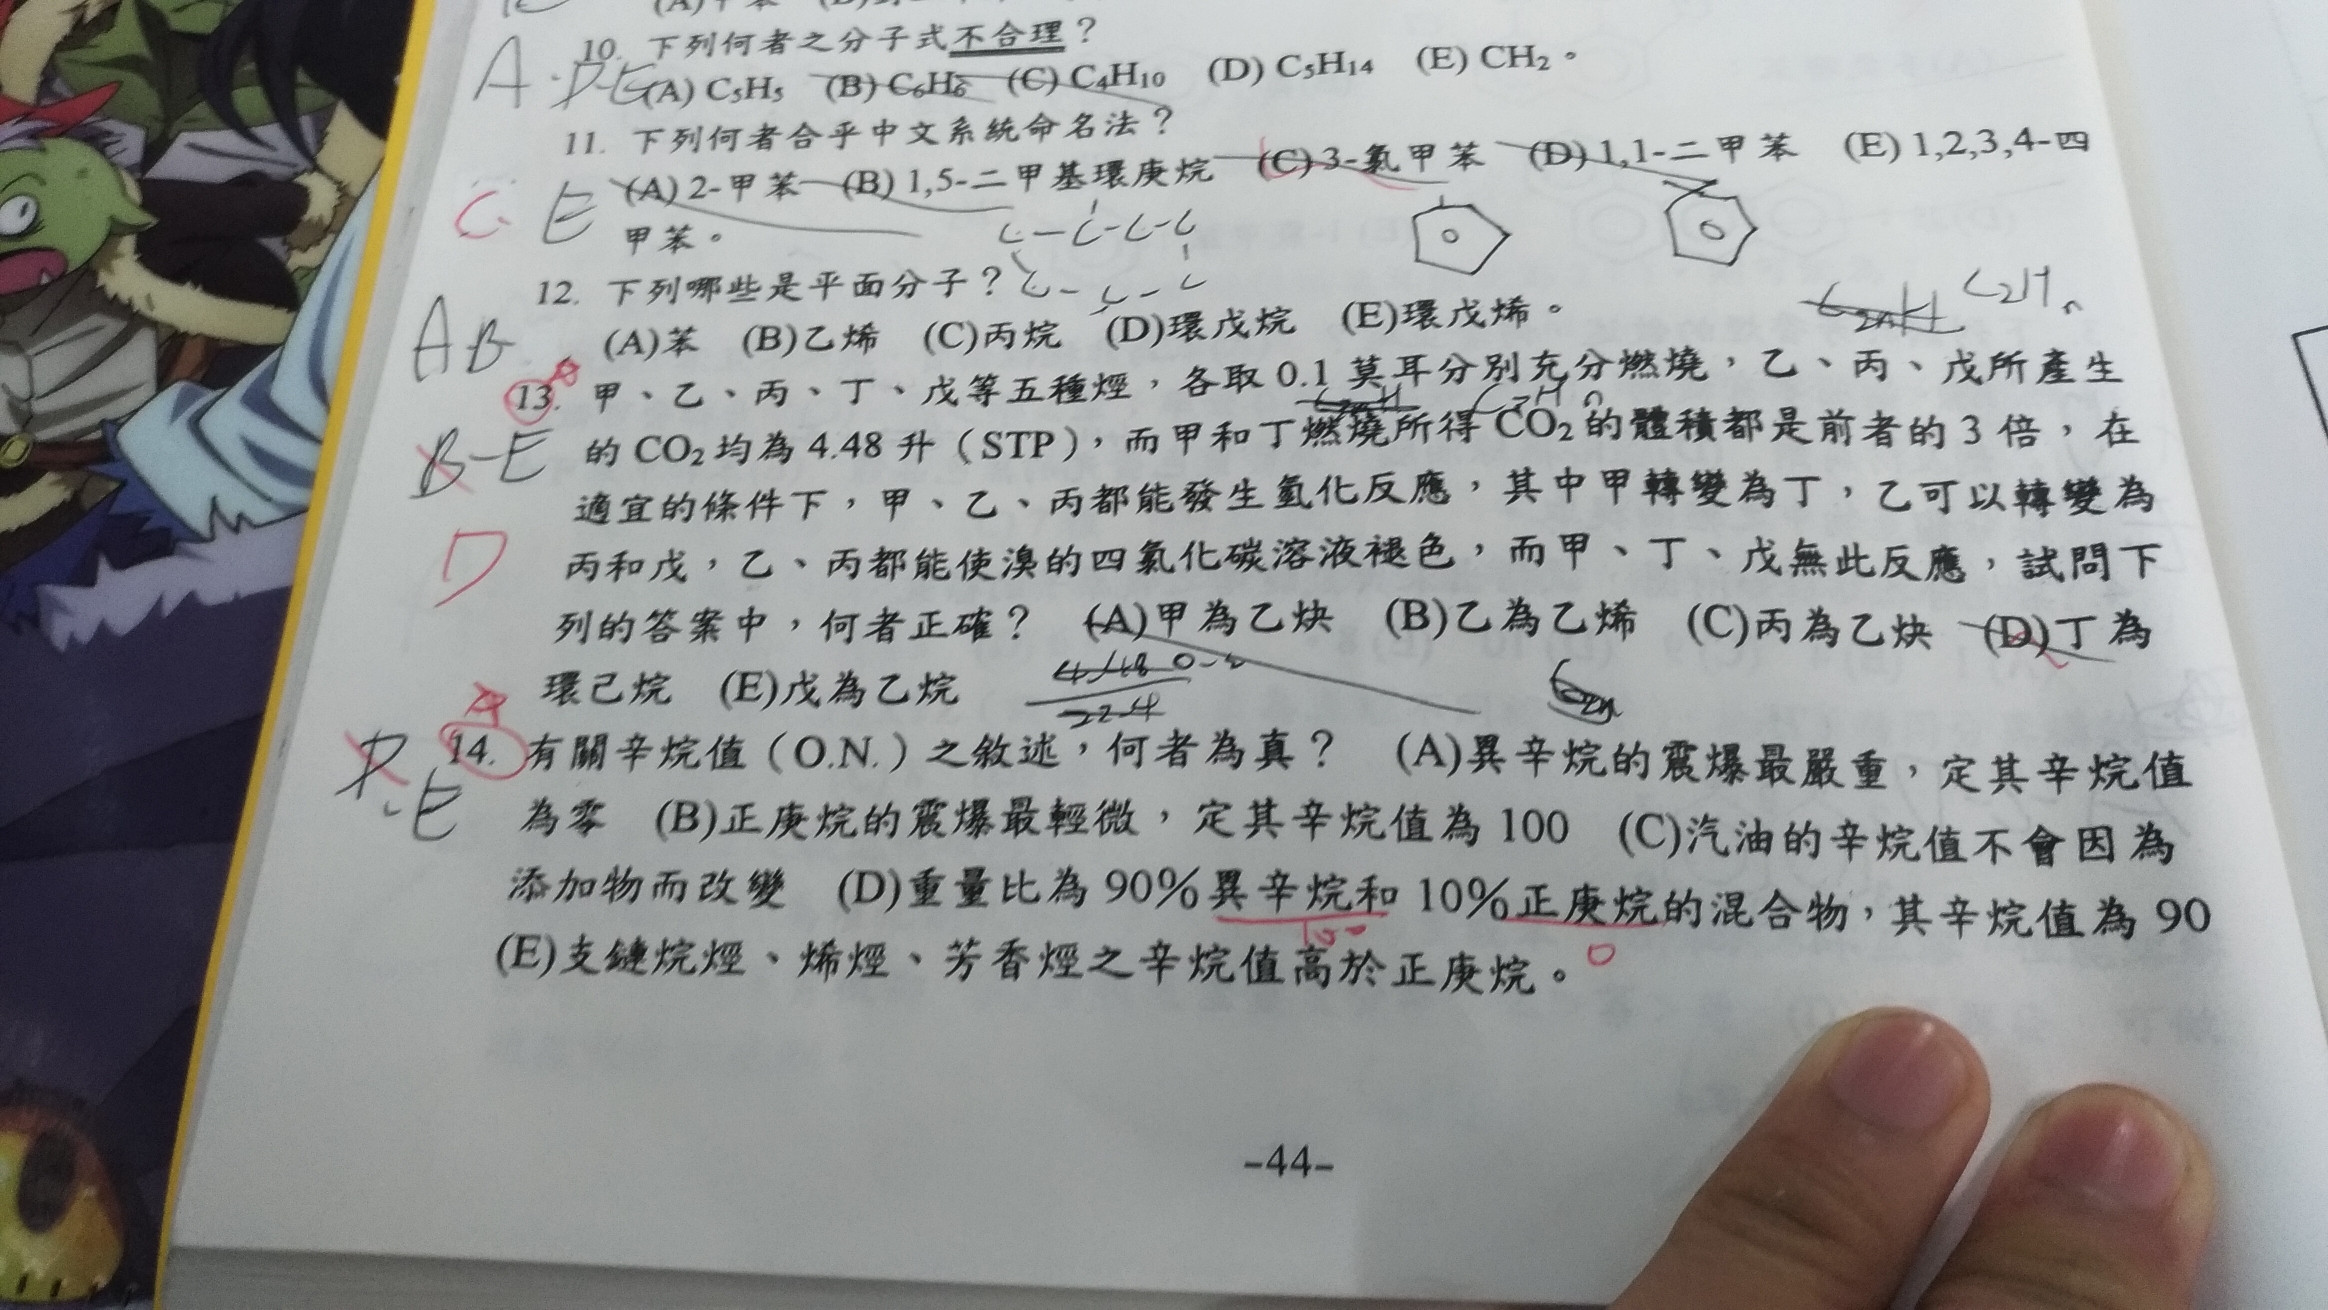 10. 下列何者之分子式不合理？
A.D.E (A) C5H5 (B) C6H6 (C) C4H10 (D) C5H14 (E) CH2。
11. 下列何者合乎中文系統命名法？
C. E (A) 2-甲苯 (B) 1,5-二甲基環庚烷 (C) 3-氯甲苯 (D) 1,1-二甲苯 (E) 1,2,3,4-四
甲苯。
12. 下列哪些是平面分子？
AB (A)苯 (B)乙烯 (C)丙烷 (D)環戊烷 (E)環戊烯。
13. 甲、乙、丙、丁、戊等五種烴，各取 0.1 莫耳分別充分燃燒，乙、丙、戊所產生
B-E 的 CO2 均為 4.48 升（STP），而甲和丁燃燒所得 CO2 的體積都是前者的 3 倍，在
適宜的條件下，甲、乙、丙都能發生氫化反應，其中甲轉變為丁，乙可以轉變為
D 丙和戊，乙、丙都能使溴的四氯化碳溶液褪色，而甲、丁、戊無此反應，試問下
列的答案中，何者正確？ (A)甲為乙炔 (B)乙為乙烯 (C)丙為乙炔 (D)丁為
環己烷 (E)戊為乙烷
14. 有關辛烷值（O.N.）之敘述，何者為真？ (A)異辛烷的震爆最嚴重，定其辛烷值
D.E 為零 (B)正庚烷的震爆最輕微，定其辛烷值為 100 (C)汽油的辛烷值不會因為
添加物而改變 (D)重量比為 90%異辛烷和 10%正庚烷的混合物，其辛烷值為 90
100 0
(E)支鏈烷烴、烯烴、芳香烴之辛烷值高於正庚烷。
-44-